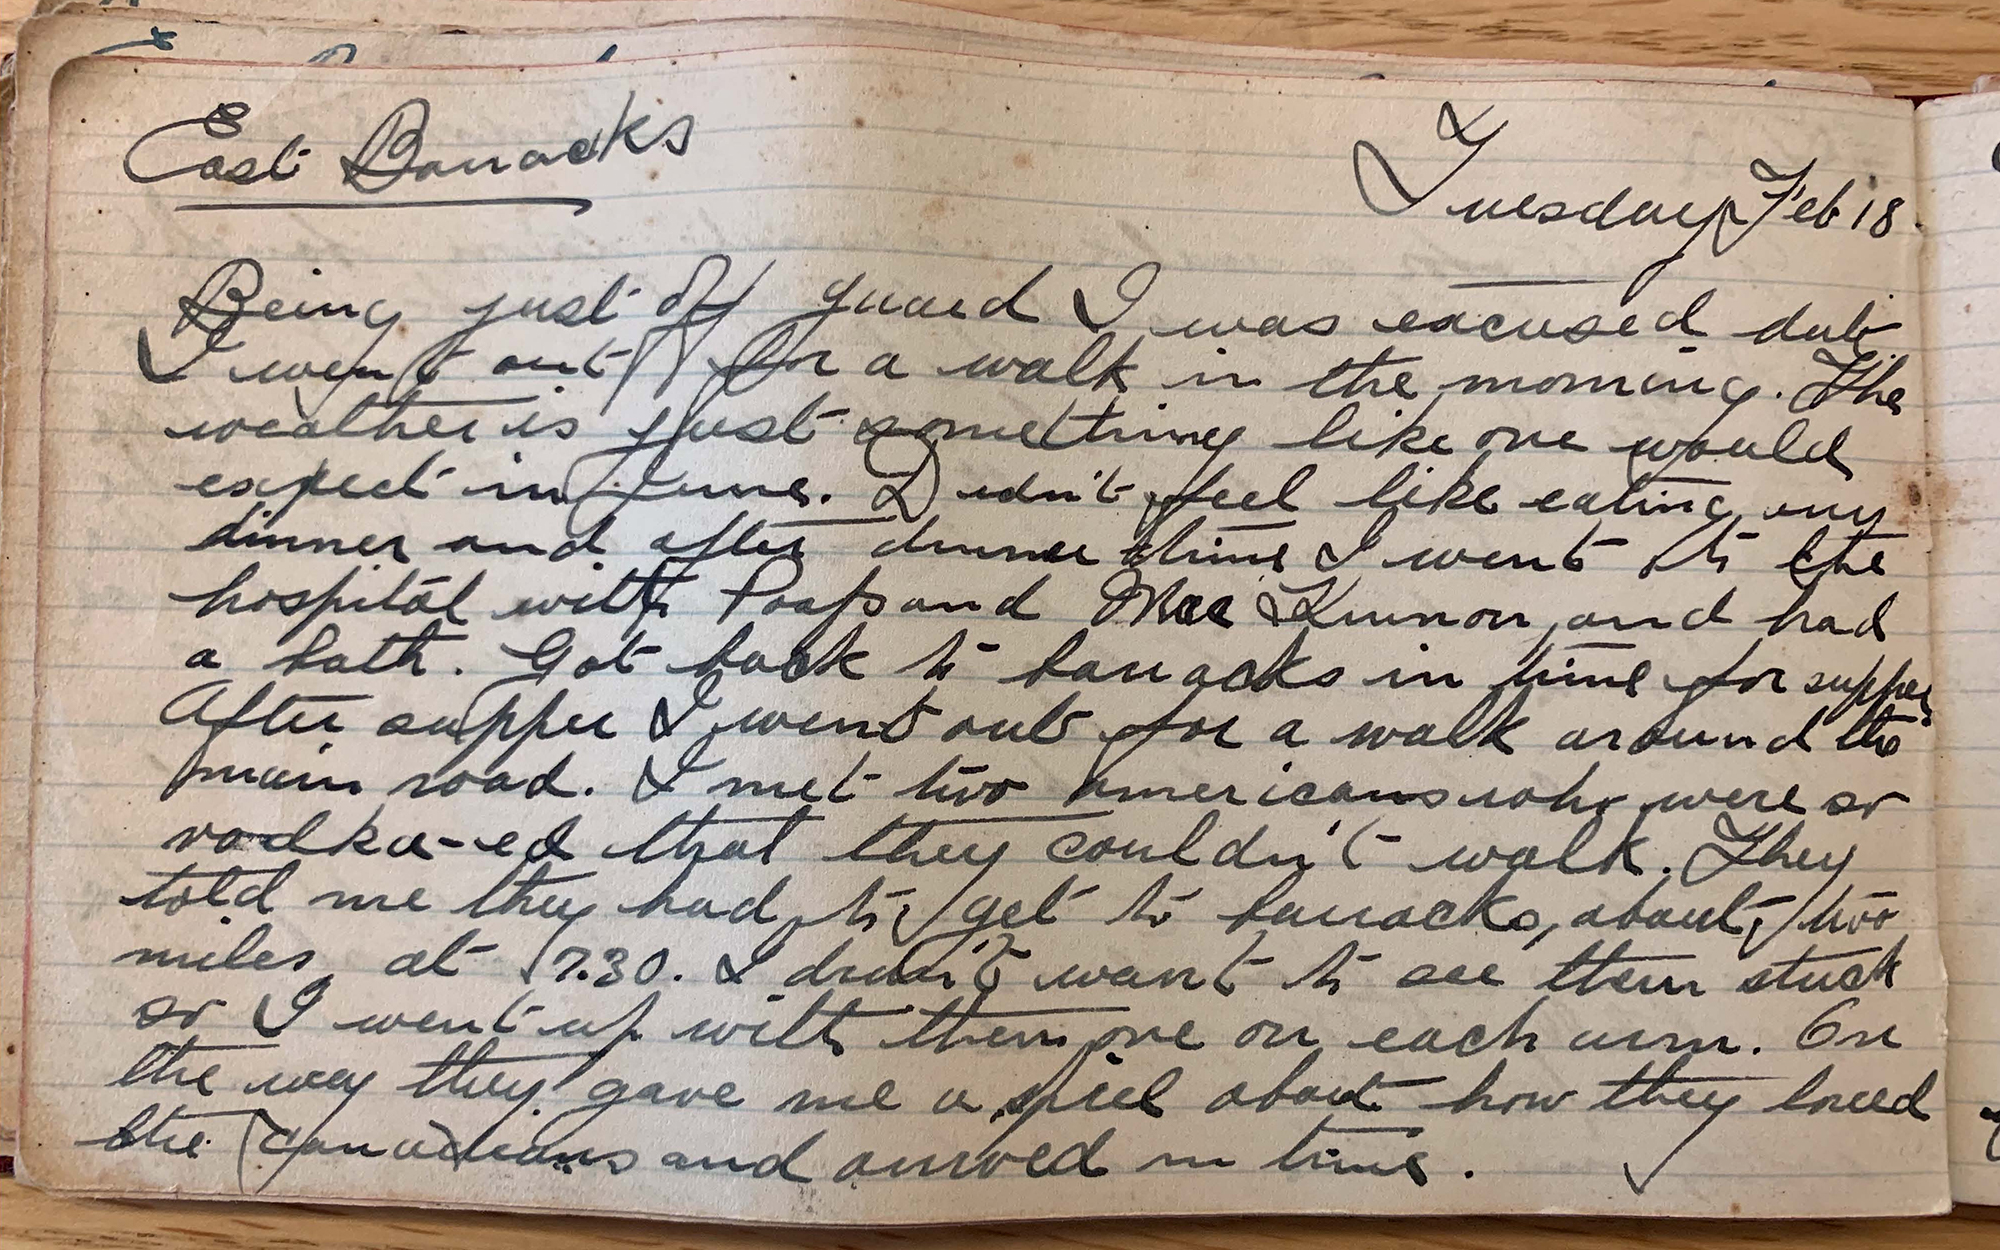 East Barracks
Tuesday Feb 18.
Being just off guard I was excused duty
I went out for a walk in the morning. The
weather is just something like one would
expect in June. Didn't feel like eating any
dinner and after dinner time I went to the
hospital with and MacKinnon, and had
a bath. Got back to barracks in time for supper.
After supper I went out for a walk around the
main road. I met two americans who were so
vodka-ed that they couldn't walk. They
told me they had to get to barracks, about two
miles, at 7.30. I didn't want to see them stuck
so I went up with them one on each arm. On
the way they gave me a spiel about how they loved
the Canadians and arrived in time.